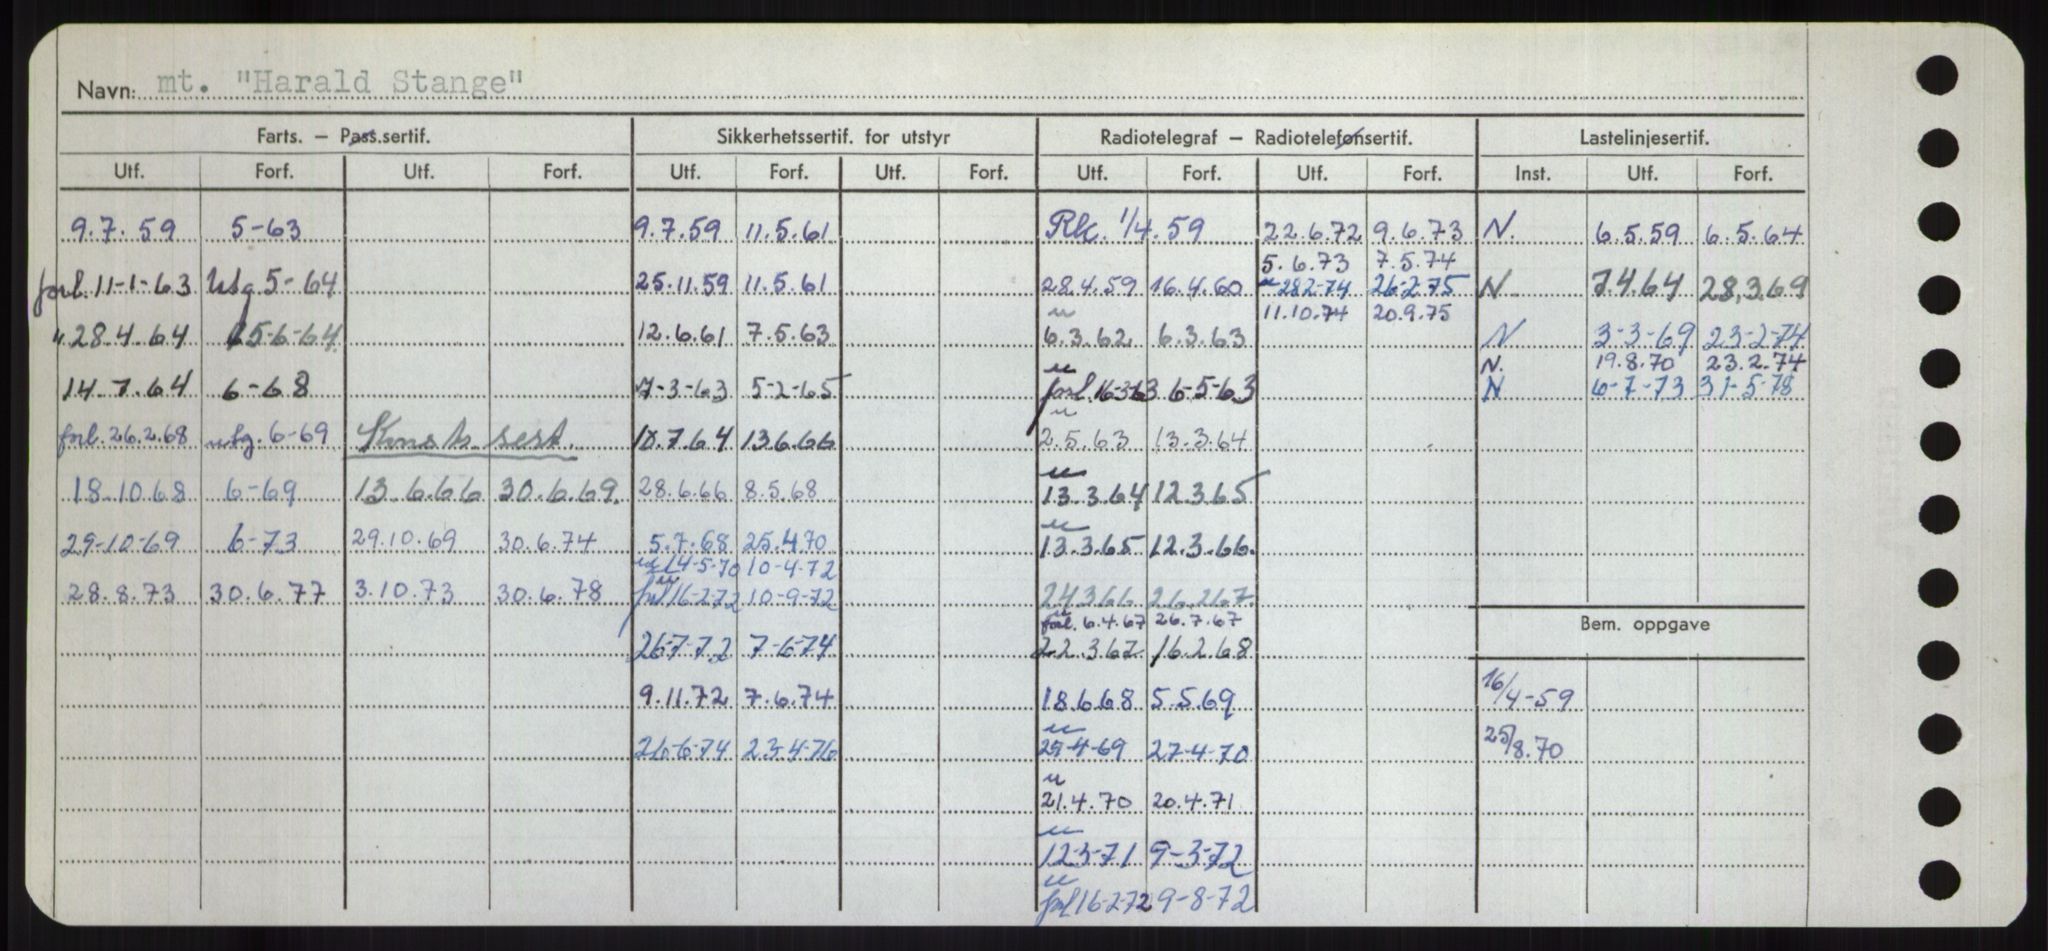 Navn: mt. "Harald Stange"
Farts. — Pass.sertif. Sikkerhetssertif. for utstyr Radiotelegraf — Radiotelefonsertif. Lastelinjesertif.
Utf. Forf. Utf. Forf. Utf. Forf. Utf. Forf. Utf. Forf. Utf. Forf. Inst. Utf. Forf.
9.7.59 5-63 9.7.59 11.5.61 Rk. 1/4.59 22.6.72 9.6.73 N. 6.5.59 6.5.64
5.6.73 7.5.74
forl. 11-1-63 utg 5-64 25.11.59 11.5.61 28.4.59 16.4.60 " 28.2-74 26-2-75 N 7.4.64 28.3.69
11.10.74 20.9.75
" 28.4.64 15-6-64 12.6.61 7.5.63 " 6.3.62 6.3.63 N 3-3-69 23-2-74
N. 19.8.70 23.2.74
14.7.64 6-68 7-3-63 5-2-65 " forl. 16-3-63 6-5-63 N 6-7-73 31-5-78
forl. 26.2.68 utg. 6-69 Konstr. sert. 10.7.64 13.6.66 " 2.5.63 13.3.64
18.10.68 6-69 13.6.66 30.6.69. 28.6.66 8.5.68 " 13.3.64 12.3.65
29-10-69 6-73 29.10.69 30.6.74 5.7.68 25.4.70 " 13.3.65 12.3.66.
14-5-70 10-4-72
28.8.73 30.6.77 3.10.73 30.6.78 " forl 16-2-72 10-9-72 24.3.66 26.2.67.
" forl. 6.4.67 26.7.67
Bem. oppgave
26-7-72 7-6-74 22.3.67 16.2.68
9.11.72 7.6.74 18.6.68 5.5.69 16/4-59
26-6-74 23-4-76 " 29-4-69 27-4-70 25/8.70
" 21.4.70 20.4.71
" 12-3-71 9-3-72
" forl 16-2-72 9-8-72